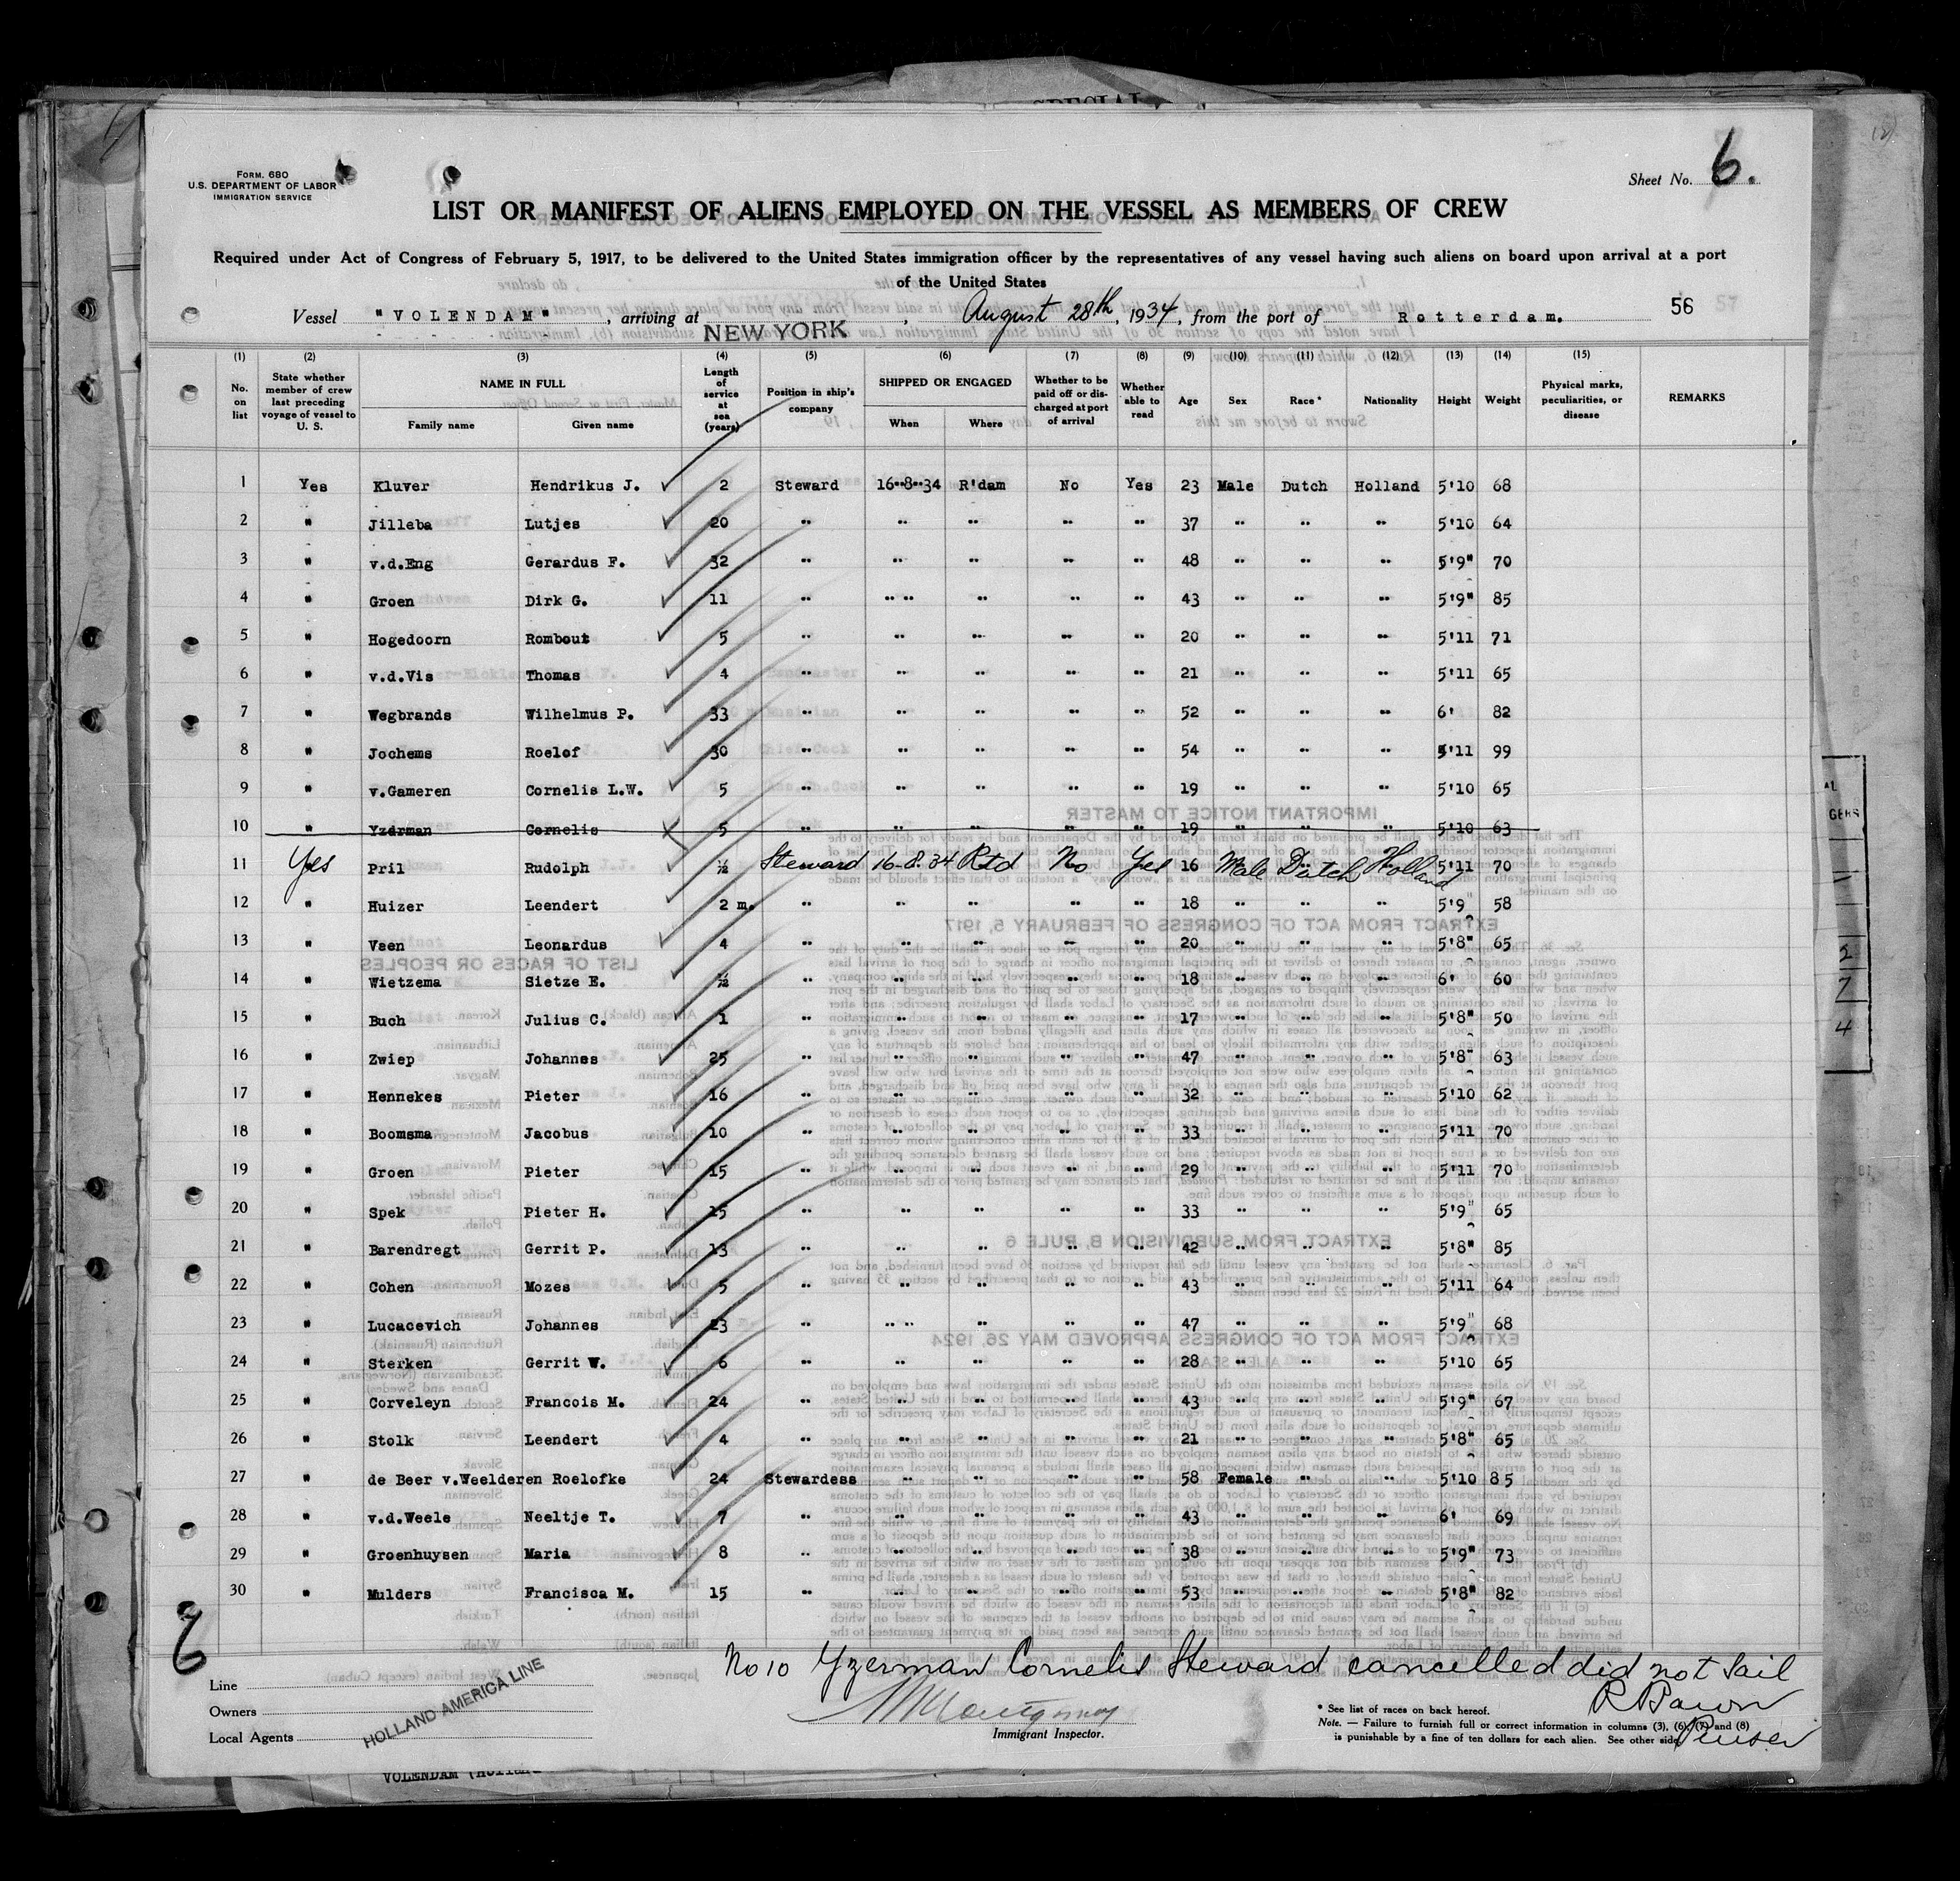 SPECIAL
Form. 680
U.S. DEPARTMENT OF LABOR
IMMIGRATION SERVICE
Sheet No. 6.
LIST OR MANIFEST OF ALIENS EMPLOYED ON THE VESSEL AS MEMBERS OF CREW
Required under Act of Congress of February 5, 1917, to be delivered to the United States immigration officer by the representatives of any vessel having such aliens on board upon arrival at a port
of the United States
Vessel "VOLENDAM", arriving at NEW YORK, August 28th, 1934, from the port of Rotterdam. 56 57
(1) (2) (3) (4) (5) (6) (7) (8) (9) (10) (11) (12) (13) (14) (15)
No. on list | State whether member of crew last preceding voyage of vessel to U. S. | NAME IN FULL Family name Given name | Length of service at sea (years) | Position in ship's company | SHIPPED OR ENGAGED When Where | Whether to be paid off or discharged at port of arrival | Whether able to read | Age | Sex | Race * | Nationality | Height | Weight | Physical marks, peculiarities, or disease | REMARKS
1 Yes Kluver Hendrikus J. 2 Steward 16"8"34 R'dam No Yes 23 Male Dutch Holland 5'10 68
2 " Jilleba Lutjes 20 " " " " " 37 " " " 5'10 64
3 " v.d.Eng Gerardus F. 32 " " " " " 48 " " " 5'9" 70
4 " Groen Dirk G. 11 " " " " " " 43 " " " 5'9" 85
5 " Hogedoorn Rombout 5 " " " " " 20 " " " 5'11 71
6 " v.d.Vis Thomas 4 " " " " " 21 " " " 5'11 65
7 " Wegbrands Wilhelmus P. 33 " " " " " 52 " " " 6' 82
8 " Jochems Roelof 30 " " " " " 54 " " " 5'11 99
9 " v.Gameren Cornelis L.W. 5 " " " " " 19 " " " 5'10 65
10 " Yzdrman Cornelis 5 " " " " " 19 " " " 5'10 63
11 Yes Pril Rudolph ½ Steward 16-8-34 Rtd No Yes 16 Male Dutch Holland 5'11 70
12 " Huizer Leendert 2 m. " " " " " 18 " " " 5'9" 58
13 " Veen Leonardus 4 " " " " " 20 " " " 5'8" 65
14 " Wietzema Sietze E. ½ " " " " " 18 " " " 6' 60
15 " Buch Julius C. 1 " " " " " 17 " " " 5'8" 50
16 " Zwiep Johannes 25 " " " " " 47 " " " 5'8" 63
17 " Hennekes Pieter 16 " " " " " 32 " " " 5'10 62
18 " Boomsma Jacobus 10 " " " " " 33 " " " 5'11 70
19 " Groen Pieter 15 " " " " " 29 " " " 5'11 70
20 " Spek Pieter H. 15 " " " " " 33 " " " 5'9" 65
21 " Barendregt Gerrit P. 13 " " " " " 42 " " " 5'8" 85
22 " Cohen Mozes 5 " " " " " 43 " " " 5'11 64
23 " Lucacevich Johannes 23 " " " " " " 47 " " " 5'9" 68
24 " Sterken Gerrit W. 6 " " " " " 28 " " " 5'10 65
25 " Corveleyn Francois M. 24 " " " " " 43 " " " 5'9" 67
26 " Stolk Leendert 4 " " " " " 21 " " " 5'8" 65
27 " de Beer v.Weelderen Roelofke 24 Stewardess " " " " 58 Female " " 5'10 85
28 " v.d.Weele Neeltje T. 7 " " " " " 43 " " " 6' 69
29 " Groenhuysen Maria 8 " " " " " 38 " " " 5'9" 73
30 " Mulders Francisca M. 15 " " " " " 53 " " " 5'8" 82
No 10 Yzerman Cornelis Steward cancelled did not sail
Purser
Line
Owners
Local Agents
HOLLAND AMERICA LINE
Immigrant Inspector.
* See list of races on back hereof.
Note. — Failure to furnish full or correct information in columns (3), (6), (7) and (8)
is punishable by a fine of ten dollars for each alien. See other side
VOLENDAM